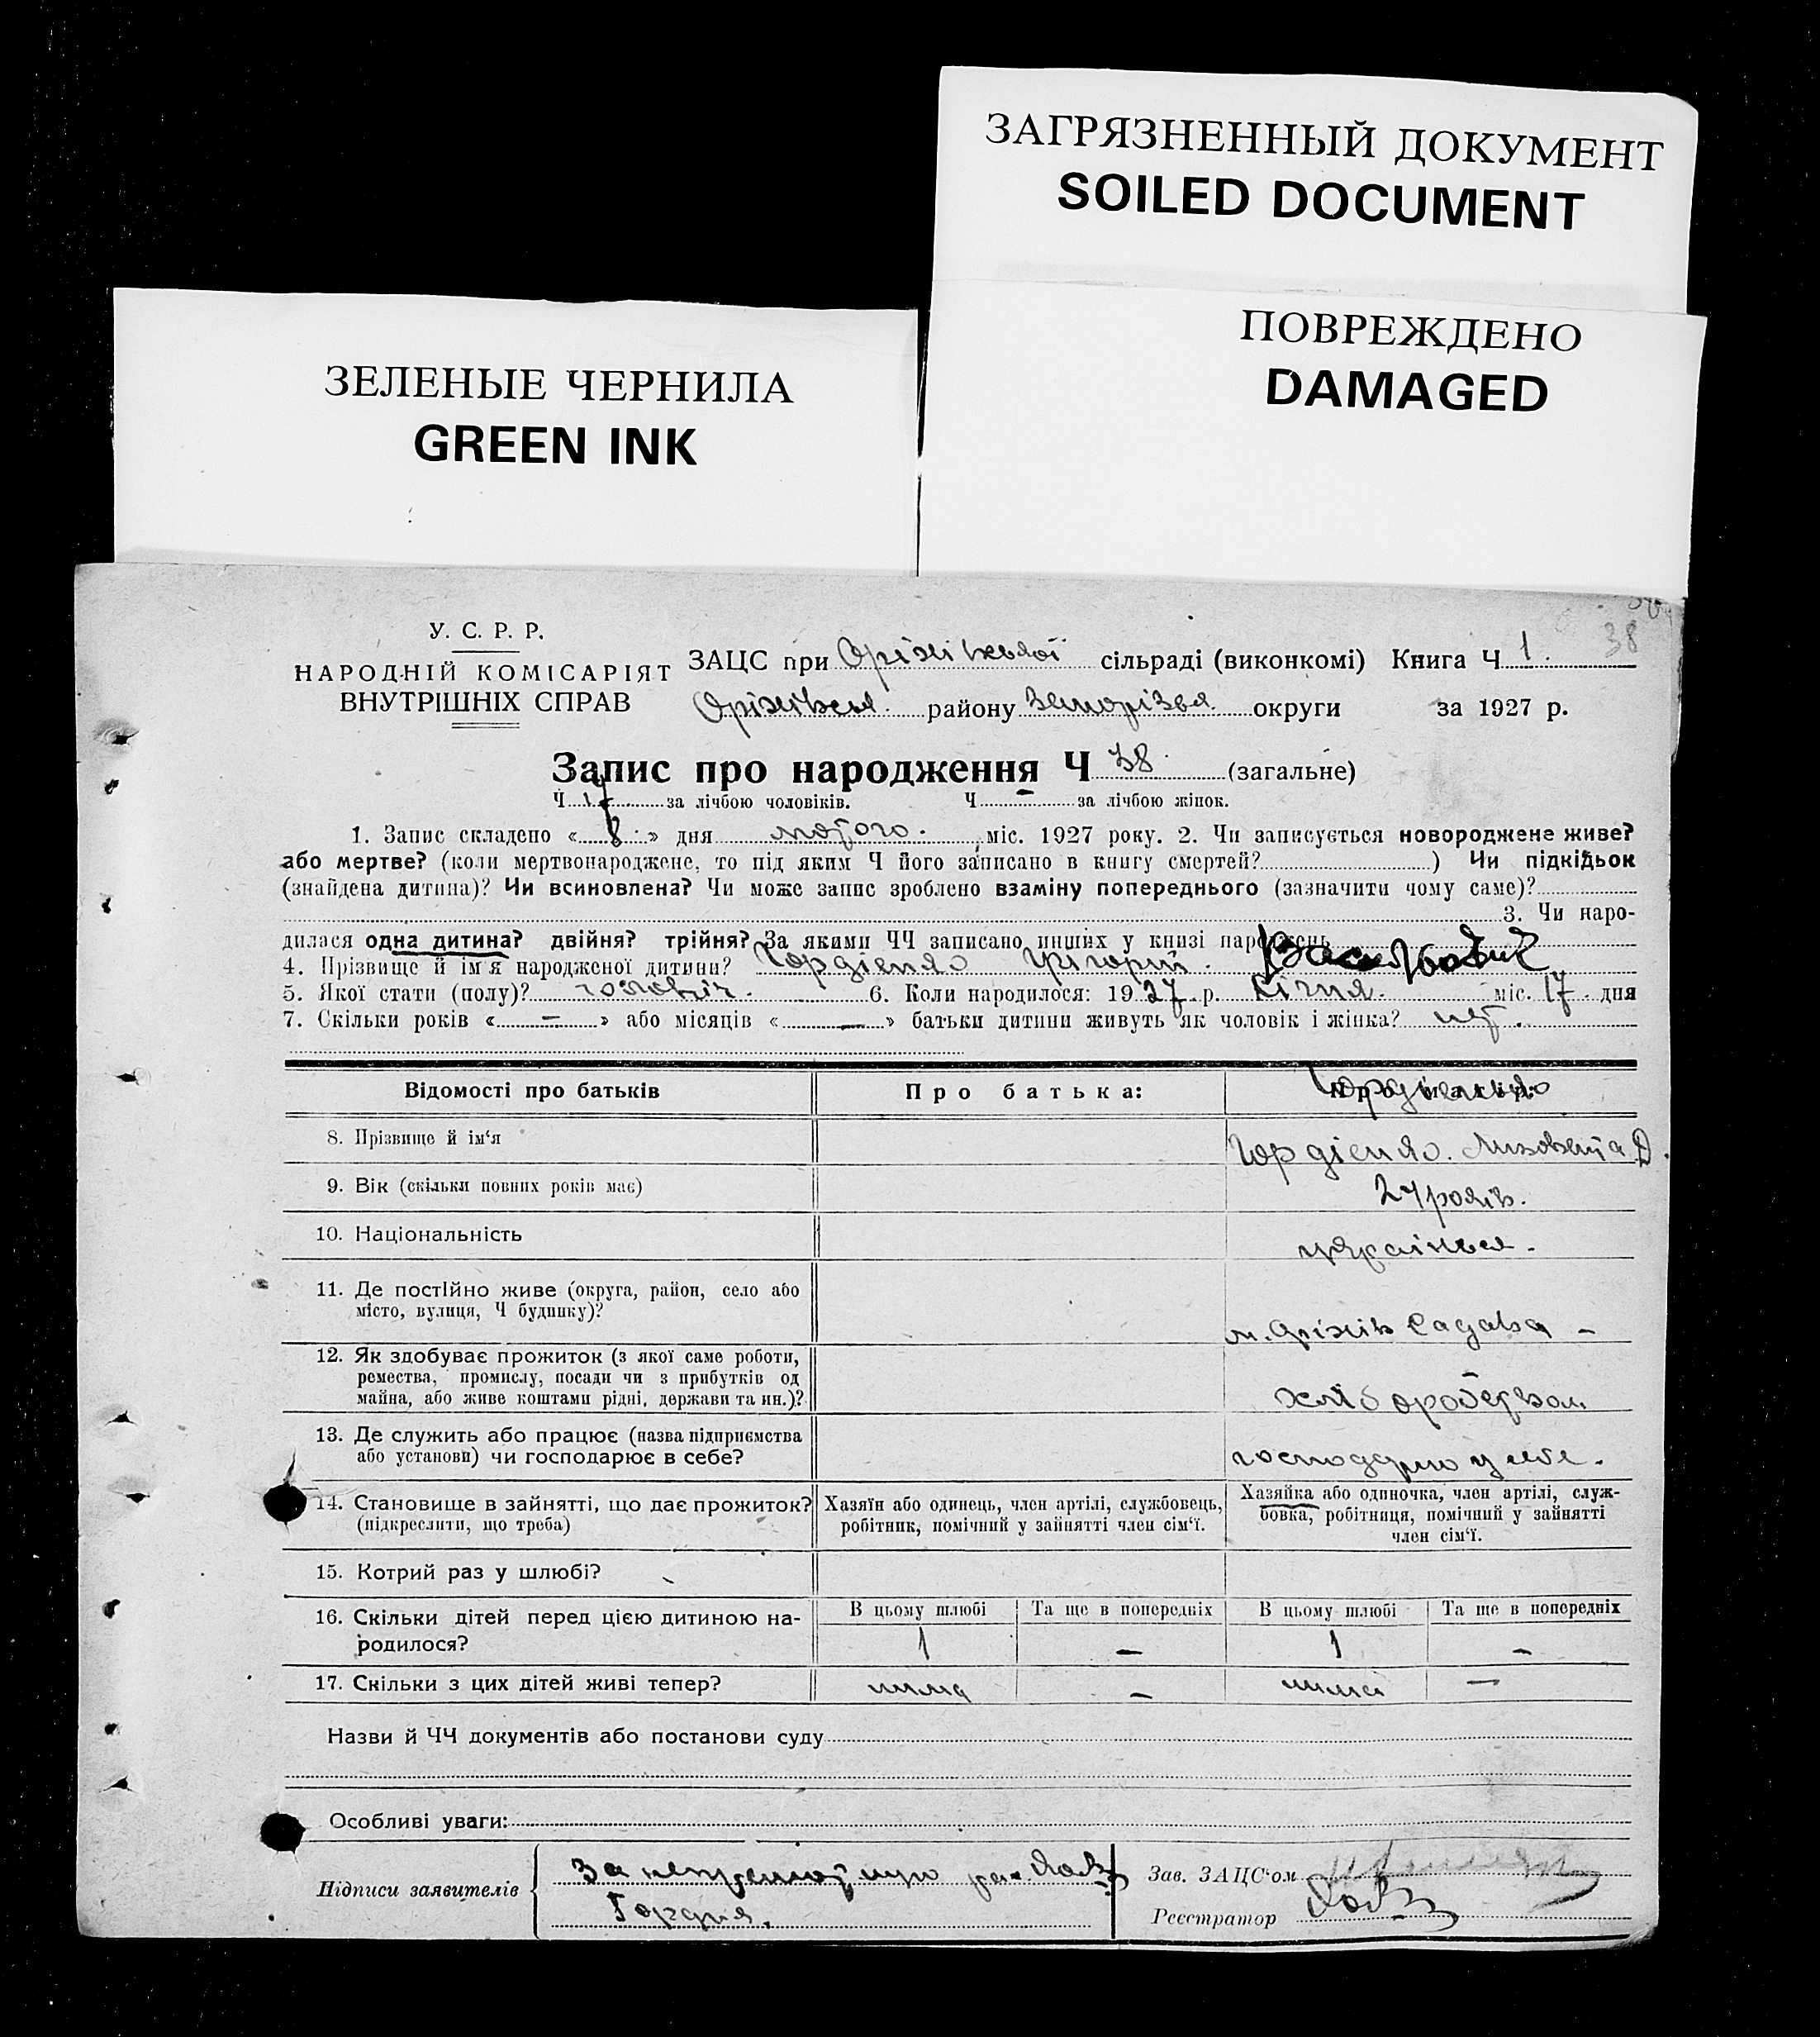 ЗАГРЯЗНЕННЫЙ ДОКУМЕНТ
SOILED DOCUMENT
ПОВРЕЖДЕНО
DAMAGED
ЗЕЛЕНЫЕ ЧЕРНИЛА
GREEN INK
38
У. С. Р. Р.
НАРОДНІЙ КОМІСАРІЯТ
ВНУТРІШНІХ СПРАВ
ЗАЦС при Оріхівській сільраді (виконкомі) Книга Ч 1.
району округи за 1927 р.
Запис про народження Ч 38 (загальне)
Ч 17 за лічбою чоловіків. Ч — за лічбою жінок.
1. Запис складено « 8 » дня лютого міс. 1927 року. 2. Чи записується новороджене живе?
або мертве? (коли мертвонароджене, то під яким Ч його записано в книгу смертей? ) Чи підкідьок
(знайдена дитина)? Чи всиновлена? Чи може запис зроблено взаміну попереднього (зазначити чому саме)?
3. Чи наро-
дилася одна дитина? двійня? трійня? За якими ЧЧ записано инших у книзі народжень
4. Прізвище й ім'я народженої дитини? Гордієнко Григорій.
5. Якої стати (полу)? 6. Коли народилося: 1927 р. Січня міс. 17 дня
7. Скільки років « — » або місяців « — » батьки дитини живуть як чоловік і жінка? нет.
Відомості про батьків
Про батька:
Про матір:
Гордієнко
8. Прізвище й ім'я
Гордієнко. Лизовета Д.
9. Вік (скільки повних років має)
24 років.
10. Національність
українка.
11. Де постійно живе (округа, район, село або
місто, вулиця, Ч будинку)?
м. Оріхів Садова —
12. Як здобуває прожиток (з якої саме роботи,
ремества, промислу, посади чи з прибутків од
майна, або живе коштами рідні, держави та ин.)?
хліборобством
13. Де служить або працює (назва підприємства
або установи) чи господарює в себе?
14. Становище в зайнятті, що дає прожиток?
(підкреслити, що треба)
Хазяїн або одинець, член артілі, службовець,
робітник, помічний у зайнятті член сім'ї.
Хазяйка або одиночка, член артілі, служ-
бовка, робітниця, помічний у зайнятті
член сім'ї.
15. Котрий раз у шлюбі?
16. Скільки дітей перед цією дитиною на-
родилося?
В цьому шлюбі Та ще в попередніх В цьому шлюбі Та ще в попередніх
1 — 1 —
17. Скільки з цих дітей живі тепер?
нима — нима —
Назви й ЧЧ документів або постанови суду
Особливі уваги:
Підписи заявителів
За
Зав. ЗАЦС'ом
Реєстратор